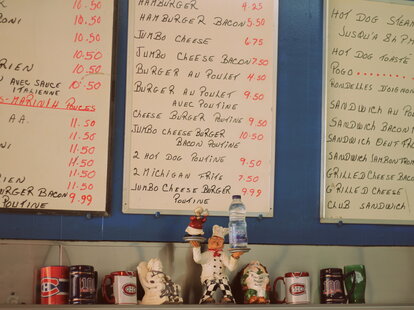 10.50
ONI
10.50
10.50
RIEN 10.50
AVEC SAUCE 10.50
ITALIENNE
S-MARININ RULES
AA. 11.50
11.50
11.50
11.50
RIEN 11.50
BURGER BACON 11.50
POUTINE 9.99
HAMBURGER 4.25
HAMBURGER BACON 5.50
JUMBO CHEESE 6.75
JUMBO CHEESE BACON 7.50
BURGER AU POULET 4.50
BURGER AU POULET 9.50
AVEC POUTINE
CHEESE BURGER POUTINE 9.50
JUMBO CHEESE BURGER 10.50
BACON POUTINE
2 HOT DOG POUTINE 9.50
2 MICHIGAN FRITE 7.50
JUMBO CHEESE BURGER 9.99
POUTINE
HOT DOG STEAM
JUSQU'A 8H PM
HOT DOG TOAST
POGO
RONDELLES D'OIGNON
SANDWICH AU PO
SANDWICH BACON
SANDWICH OEUF FR
SANDWICH JAMBON TOM
GRILLED CHEESE BACO
GRILLED CHEESE
CLUB SANDWICH